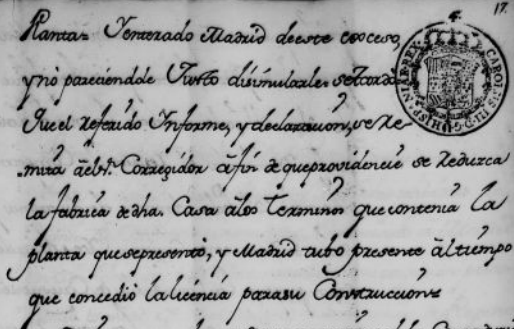 4. 17.
Planta= Y enterado Madrid de este exceso,
y no pareciendole Justo disimularle= Se Acordó
Que el referido Informe, y declaracion, se Re-
-mita a el S.r Corregidor a fin de que providencie se reduzca
la fabrica de dha. Casa a los Terminos que contenia la
planta que se presentó, y Madrid tubo presente al tiempo
que concedió la licencia para su Construccion=
CAROLUS III D.G. HISPANIAR. REX